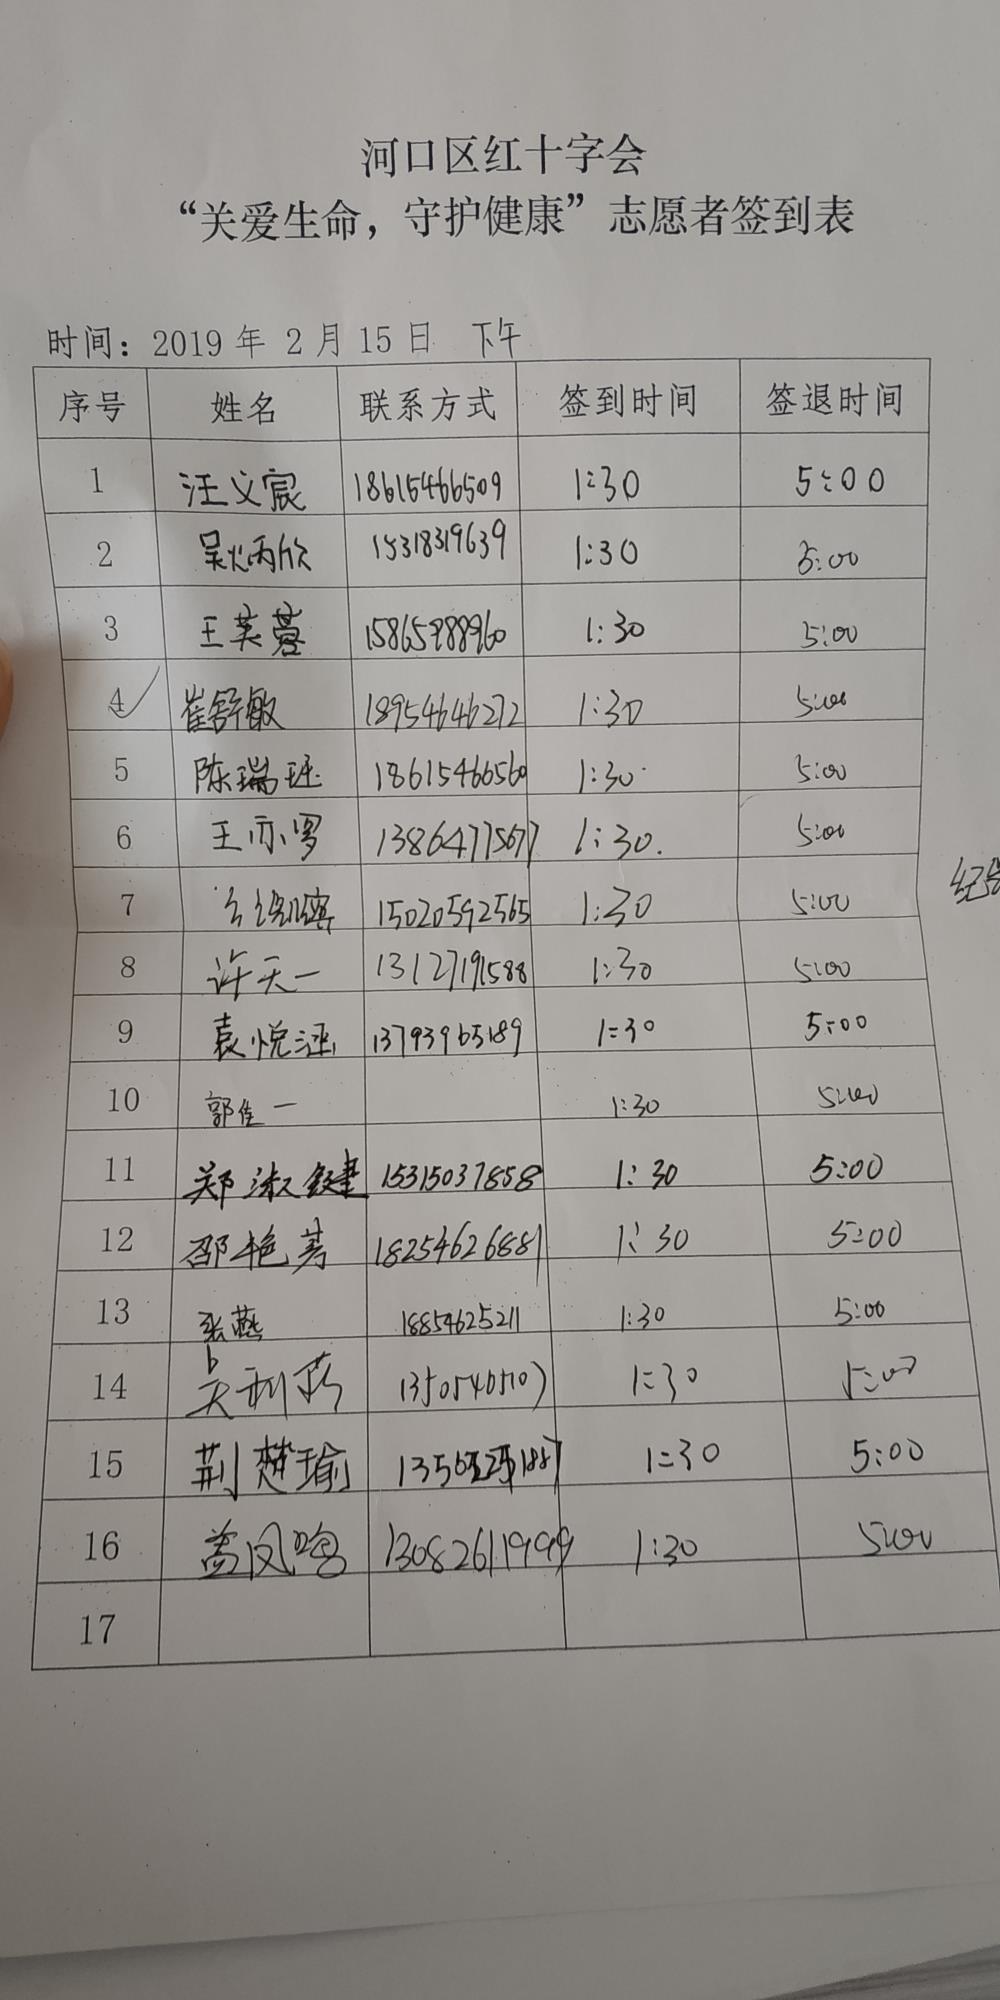 河口区红十字会
“关爱生命，守护健康”志愿者签到表
时间：2019 年 2 月 15 日 下午
序号 姓名 联系方式 签到时间 签退时间
1 汪义宸 18615466509 1:30 5:00
2 吴炳欣 15318319639 1:30 5:00
3 王芙蓉 15865988960 1:30 5:00
4 崔舒敏 18954646272 1:30 5:00
5 陈瑞珏 18615466560 1:30 5:00
6 王亦 13864775677 1:30 5:00
7 15020592565 1:30 5:00
8 许天一 13127191588 1:30 5:00
9 袁悦涵 13793965189 1:30 5:00
10 郭佳一 1:30 5:00
11 郑淑键 15315037858 1:30 5:00
12 邵艳芳 18254626881 1:30 5:00
13 张燕 18854625211 1:30 5:00
14 利 1:30 5:00
15 荆楚瑜 1:30 5:00
16 盖凤鸣 13082611999 1:30 5:00
17